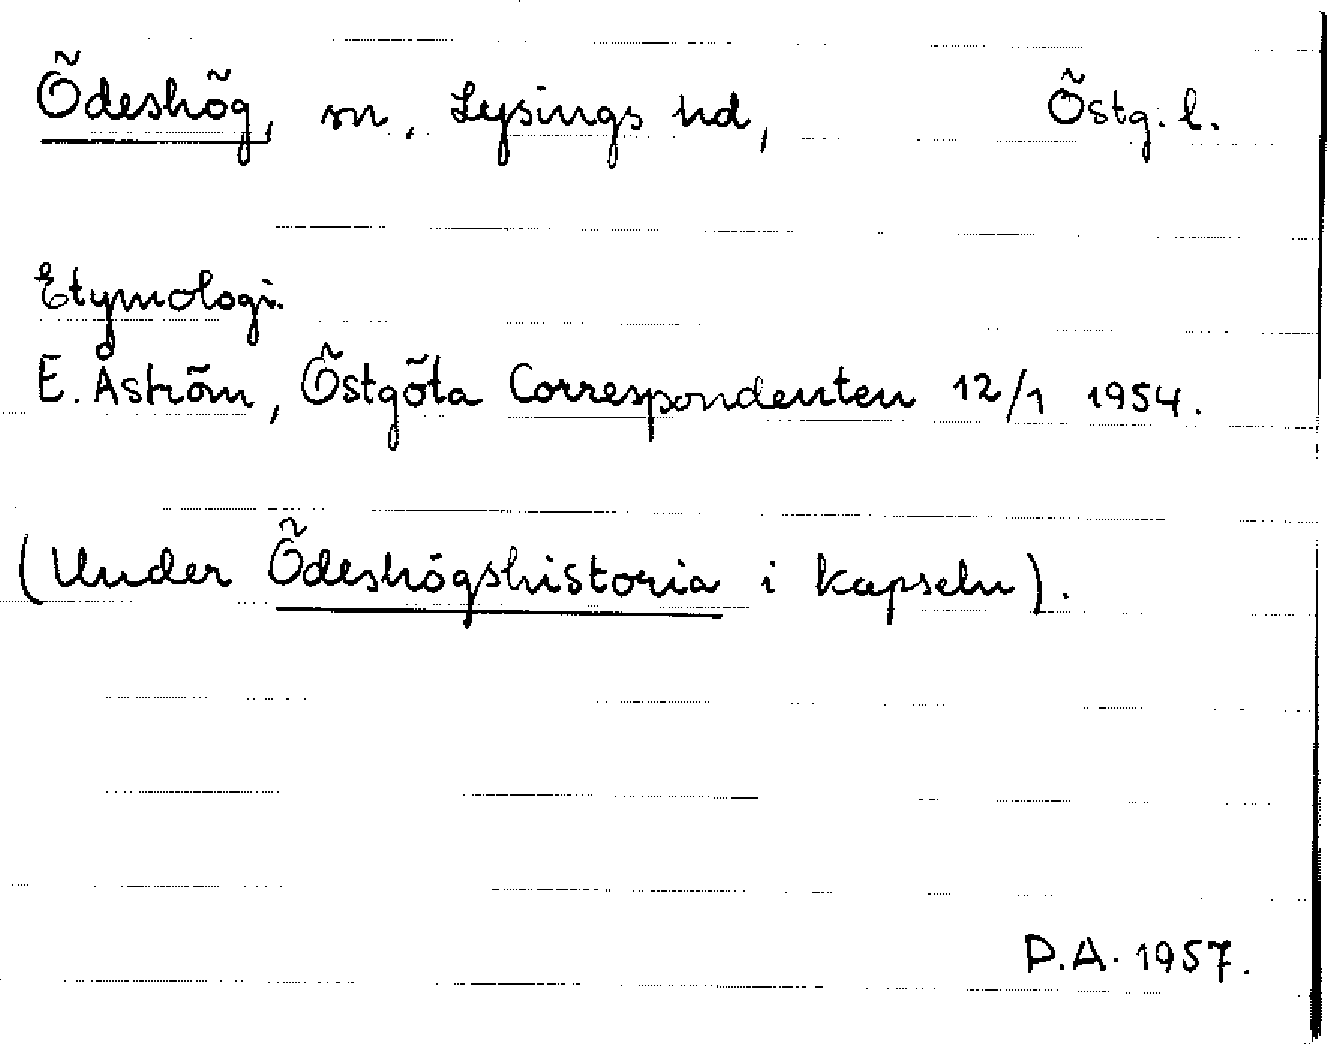 Ödeshög, sn, Lysings hd, Östg. l.
Etymologi.
E. Åström, Östgöta Correspondenten 12/1 1954.
(Under Ödeshögshistoria i kapseln).
P.A. 1957.